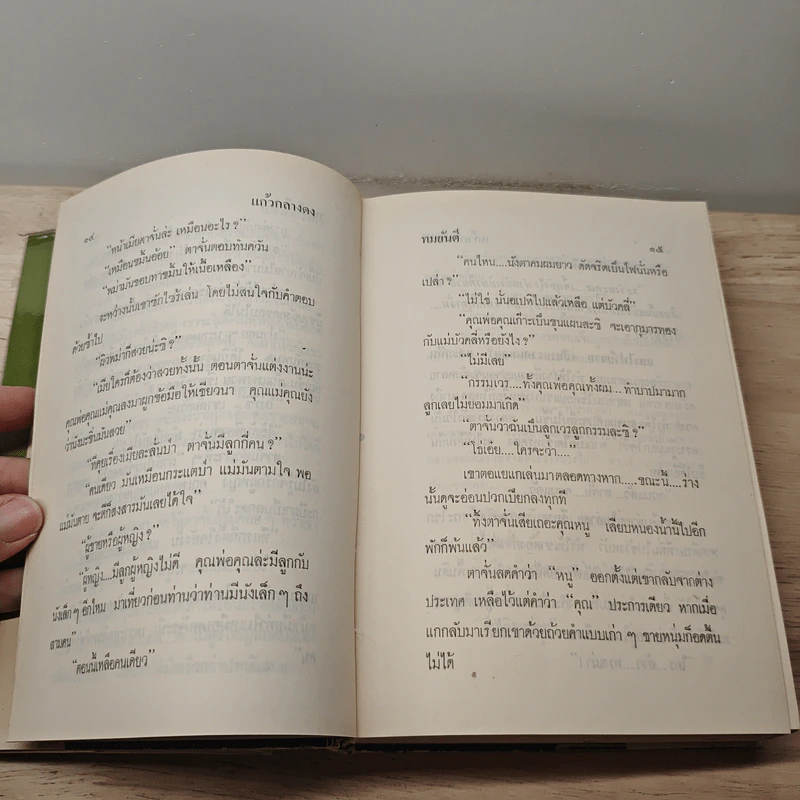 ๑๔
แก้วกลางดง
“หน้าเมียตาจั่นล่ะ เหมือนอะไร ?”
“เหมือนขมิ้นอ้อย” ตาจั่นตอบทันควัน
“พม่ามันชอบทาขมิ้นให้เนื้อเหลือง”
ระหว่างนั้นเขาซักไซร้เล่น โดยไม่สนใจกับคำตอบ
ด้วยซ้ำไป
“ผิวพม่าก็สวยน่ะซิ ?”
“เมียใครก็ต้องว่าสวยทั้งนั้น ตอนตาจั่นแต่งงานน่ะ
คุณพ่อคุณแม่คุณลงมาผูกข้อมือให้เชียวนา คุณแม่คุณยัง
ว่านังมะขิ่นมันสวย”
“ทีคุยเรื่องเมียละลั่นป่า ตาจั่นมีลูกกี่คน ?”
“คนเดียว มันเหมือนกระแตป่า แม่มันตามใจ พอ
แม่มันตาย จะตีก็สงสารมันเลยได้ใจ”
“ผู้ชายหรือผู้หญิง ?”
“ผู้หญิง....มีลูกผู้หญิงไม่ดี คุณพ่อคุณล่ะมีลูกกับ
นังเล็ก ๆ อีกไหม มาเที่ยวก่อนท่านว่าท่านมีนังเล็ก ๆ ถึง
สามคน”
“ตอนนี้เหลือคนเดียว”
ทมยันตี
๑๕
“คนไหน....นังตาคมผมยาว ดัดจริตเป็นไฟนั้นหรือ
เปล่า ?”
“ไม่ใช่ นั่นอเปหิไปแล้วเหลือ แต่บัวคลี่”
“คุณพ่อคุณเก๊าะเป็นขุนแผนละซิ จะเอากุมารทอง
กับแม่บัวคลี่หรือยังไง ?”
“ไม่มีเลย”
“กรรมเวร....ทั้งคุณพ่อคุณทั้งผม...ทำบาปมามาก
ลูกเลยไม่ยอมมาเกิด”
“ตาจั่นว่าฉันเป็นลูกเวรลูกกรรมละซิ ?”
“โธ่เอ๋ย....ใครจะว่า....”
เขาตอแยแกเล่นมาตลอดทางหาก.....ขณะนี้....ร่าง
นั้นดูจะอ่อนปวกเปียกลงทุกที
“ทิ้งตาจั่นเสียเถอะคุณหนู เลียบหนองน้ำนี้ไปอีก
พักก็พ้นแล้ว”
ตาจั่นลดคำว่า “หนู” ออกตั้งแต่เขากลับจากต่าง
ประเทศ เหลือไว้แต่คำว่า “คุณ” ประการเดียว หากเมื่อ
แกกลับมาเรียกเขาด้วยถ้อยคำแบบเก่า ๆ ชายหนุ่มก็อดตื้น
ไม่ได้